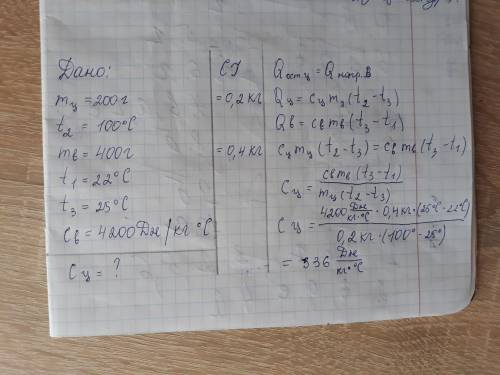 Дано:
m_ц = 200г
t₂ = 100°C
m_в = 400г
t₁ = 22°C
t₃ = 25°C
C_в = 4200 Дж/кг °C
C_ц = ?
СІ
= 0,2 кг
= 0,4 кг
Q_ост.ц = Q_нагр.в
Q_ц = c_ц m_ц (t₂ - t₃)
Q_в = c_в m_в (t₃ - t₁)
c_ц m_ц (t₂ - t₃) = c_в m_в (t₃ - t₁)
C_ц = c_в m_в (t₃ - t₁) / m_ц (t₂ - t₃)
C_ц = 4200 Дж/кг·°C · 0,4 кг · (25°C - 22°C) / 0,2 кг · (100° - 25°)
= 336 Дж/кг·°C